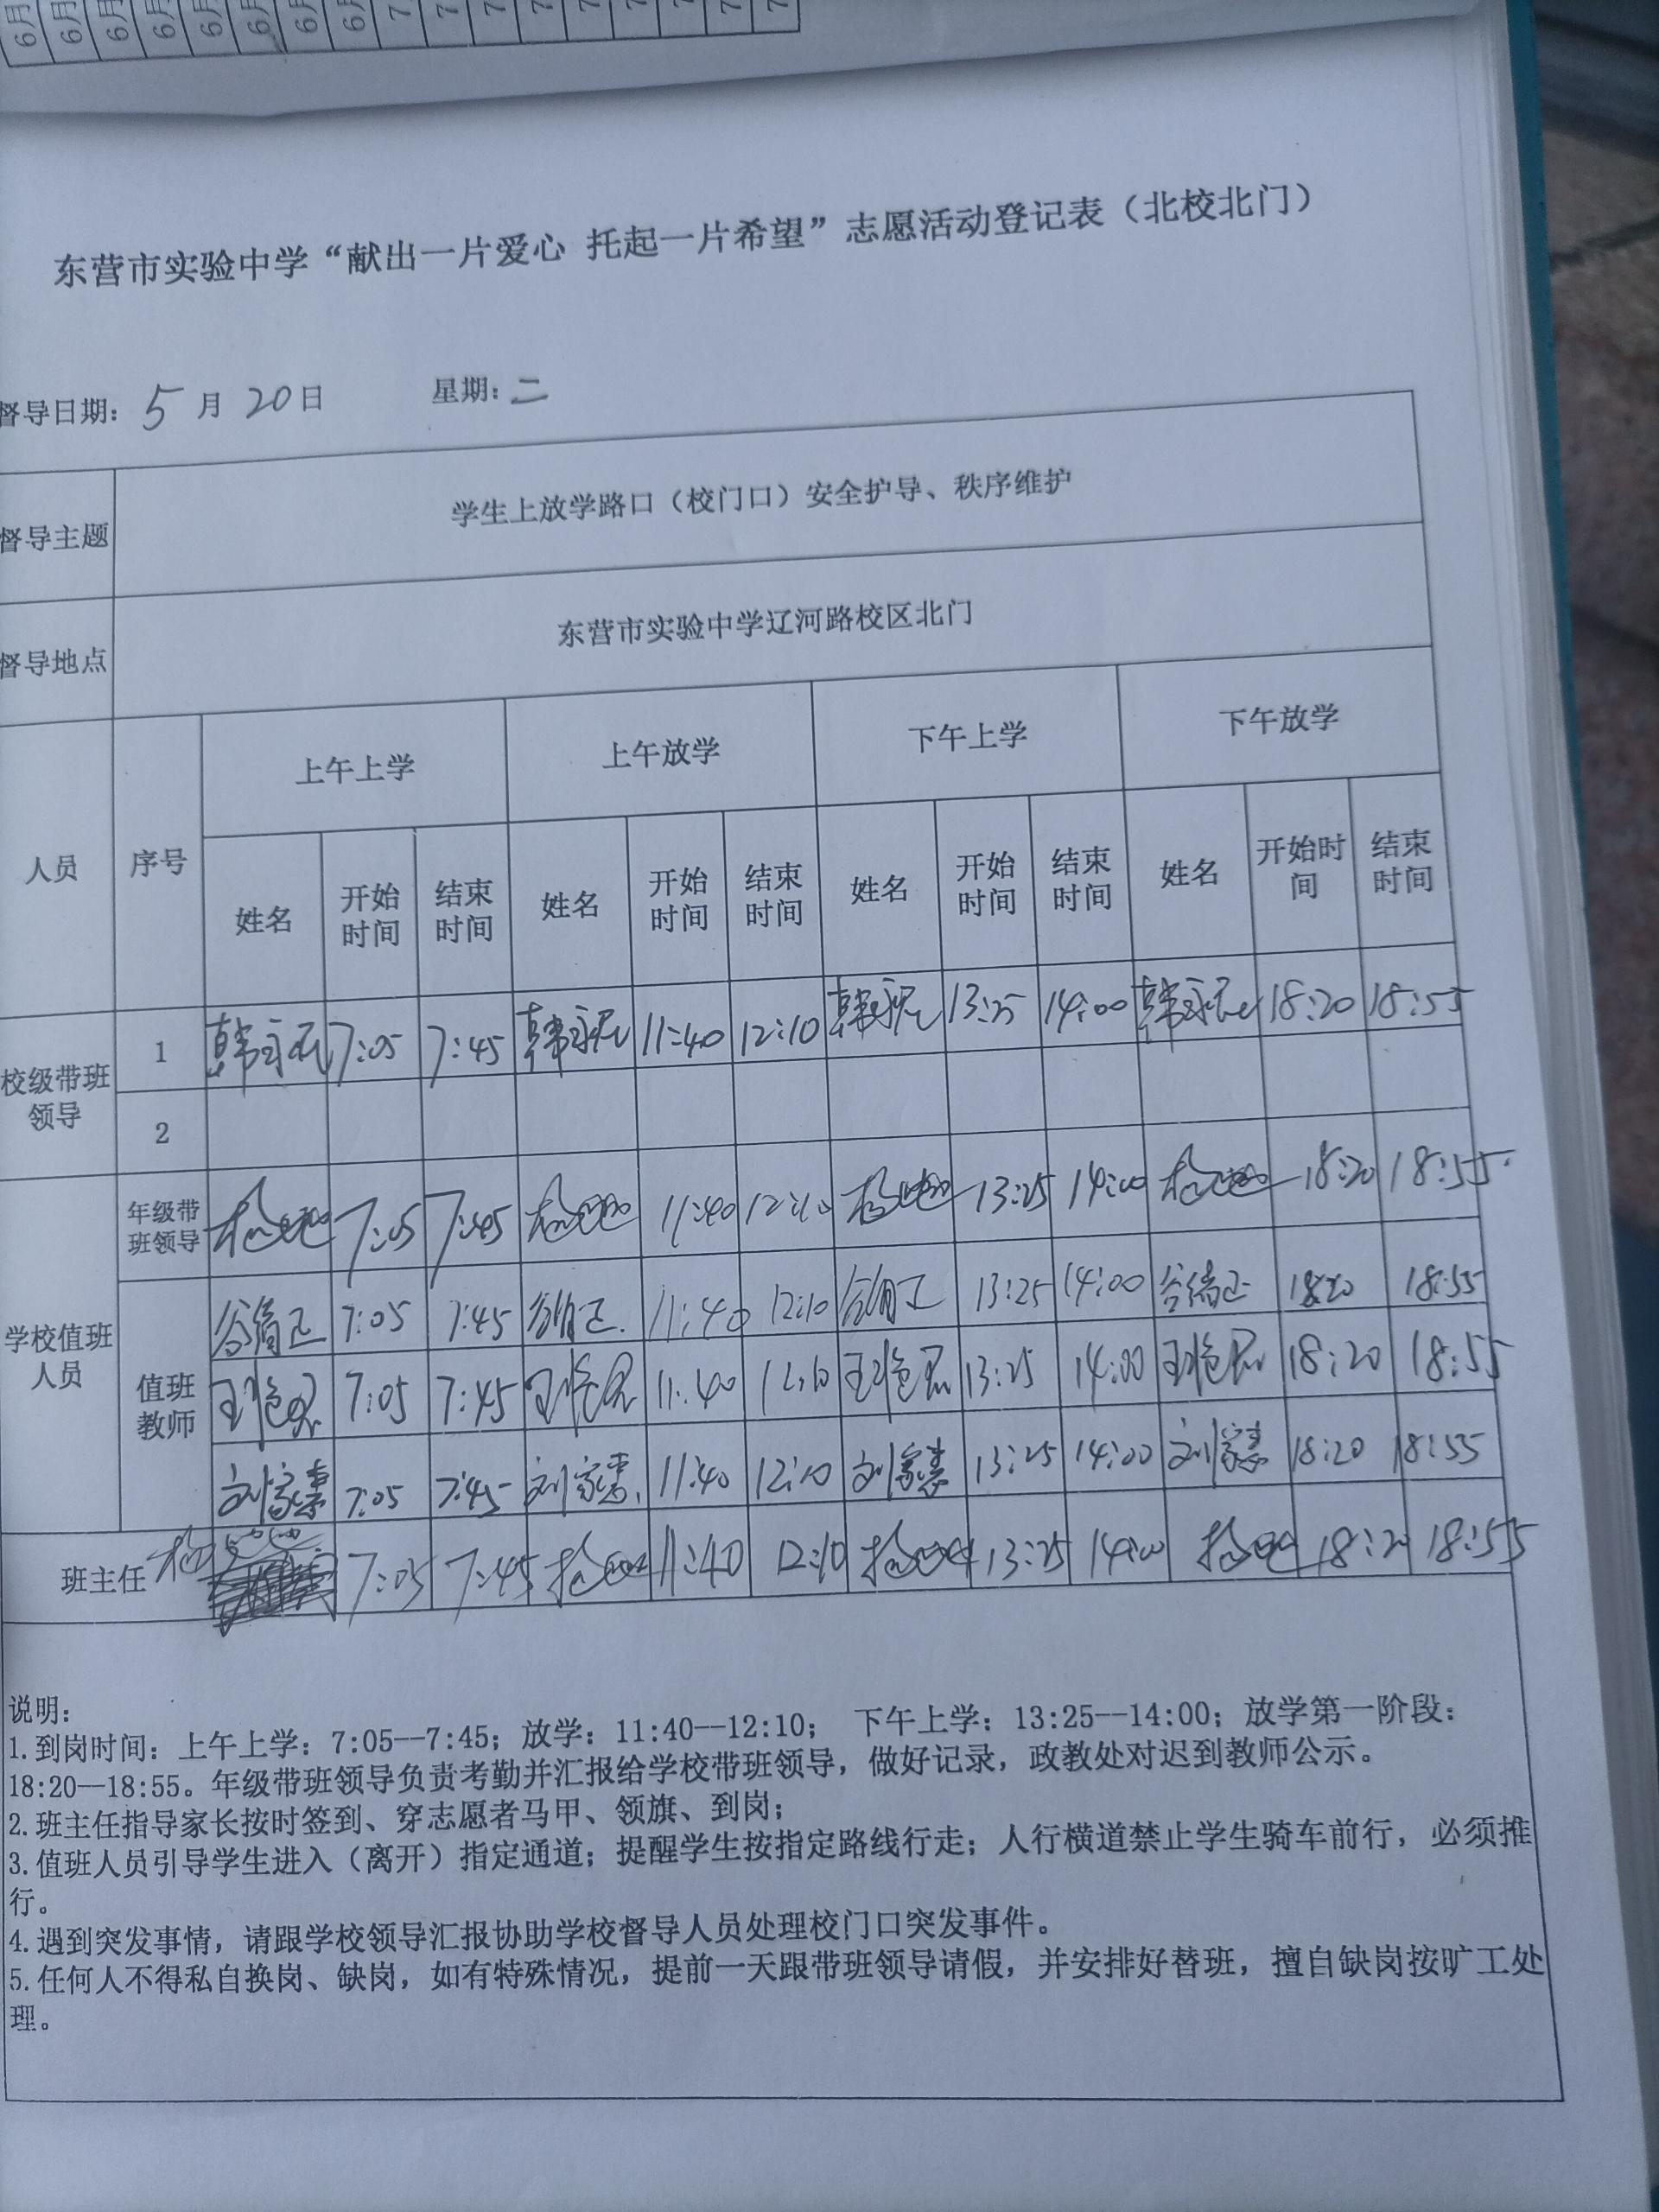 东营市实验中学“献出一片爱心 托起一片希望”志愿活动登记表（北校北门）
督导日期：5月20日 星期：二
督导主题 学生上放学路口（校门口）安全护导、秩序维护
督导地点 东营市实验中学辽河路校区北门
人员 序号 上午上学 上午放学 下午上学 下午放学
姓名 开始时间 结束时间 姓名 开始时间 结束时间 姓名 开始时间 结束时间 姓名 开始时间 结束时间
校级带班领导 1 7:05 7:45 11:40 12:10 13:25 14:00 18:20 18:55
2
学校值班人员 年级带班领导 7:05 7:45 11:40 12:10 13:25 14:00 18:20 18:55
值班教师 7:05 7:45 11:40 12:10 13:25 14:00 18:20 18:55
7:05 7:45 11:40 12:10 13:25 14:00 18:20 18:55
刘家慧 7:05 7:45 刘家慧 11:40 12:10 刘家慧 13:25 14:00 刘家慧 18:20 18:55
班主任 7:05 7:45 11:40 12:10 13:25 14:00 18:20 18:55
说明：
1.到岗时间：上午上学：7:05--7:45；放学：11:40--12:10； 下午上学：13:25--14:00；放学第一阶段：
18:20--18:55。年级带班领导负责考勤并汇报给学校带班领导，做好记录，政教处对迟到教师公示。
2.班主任指导家长按时签到、穿志愿者马甲、领旗、到岗；
3.值班人员引导学生进入（离开）指定通道；提醒学生按指定路线行走；人行横道禁止学生骑车前行，必须推
行。
4.遇到突发事情，请跟学校领导汇报协助学校督导人员处理校门口突发事件。
5.任何人不得私自换岗、缺岗，如有特殊情况，提前一天跟带班领导请假，并安排好替班，擅自缺岗按旷工处
理。